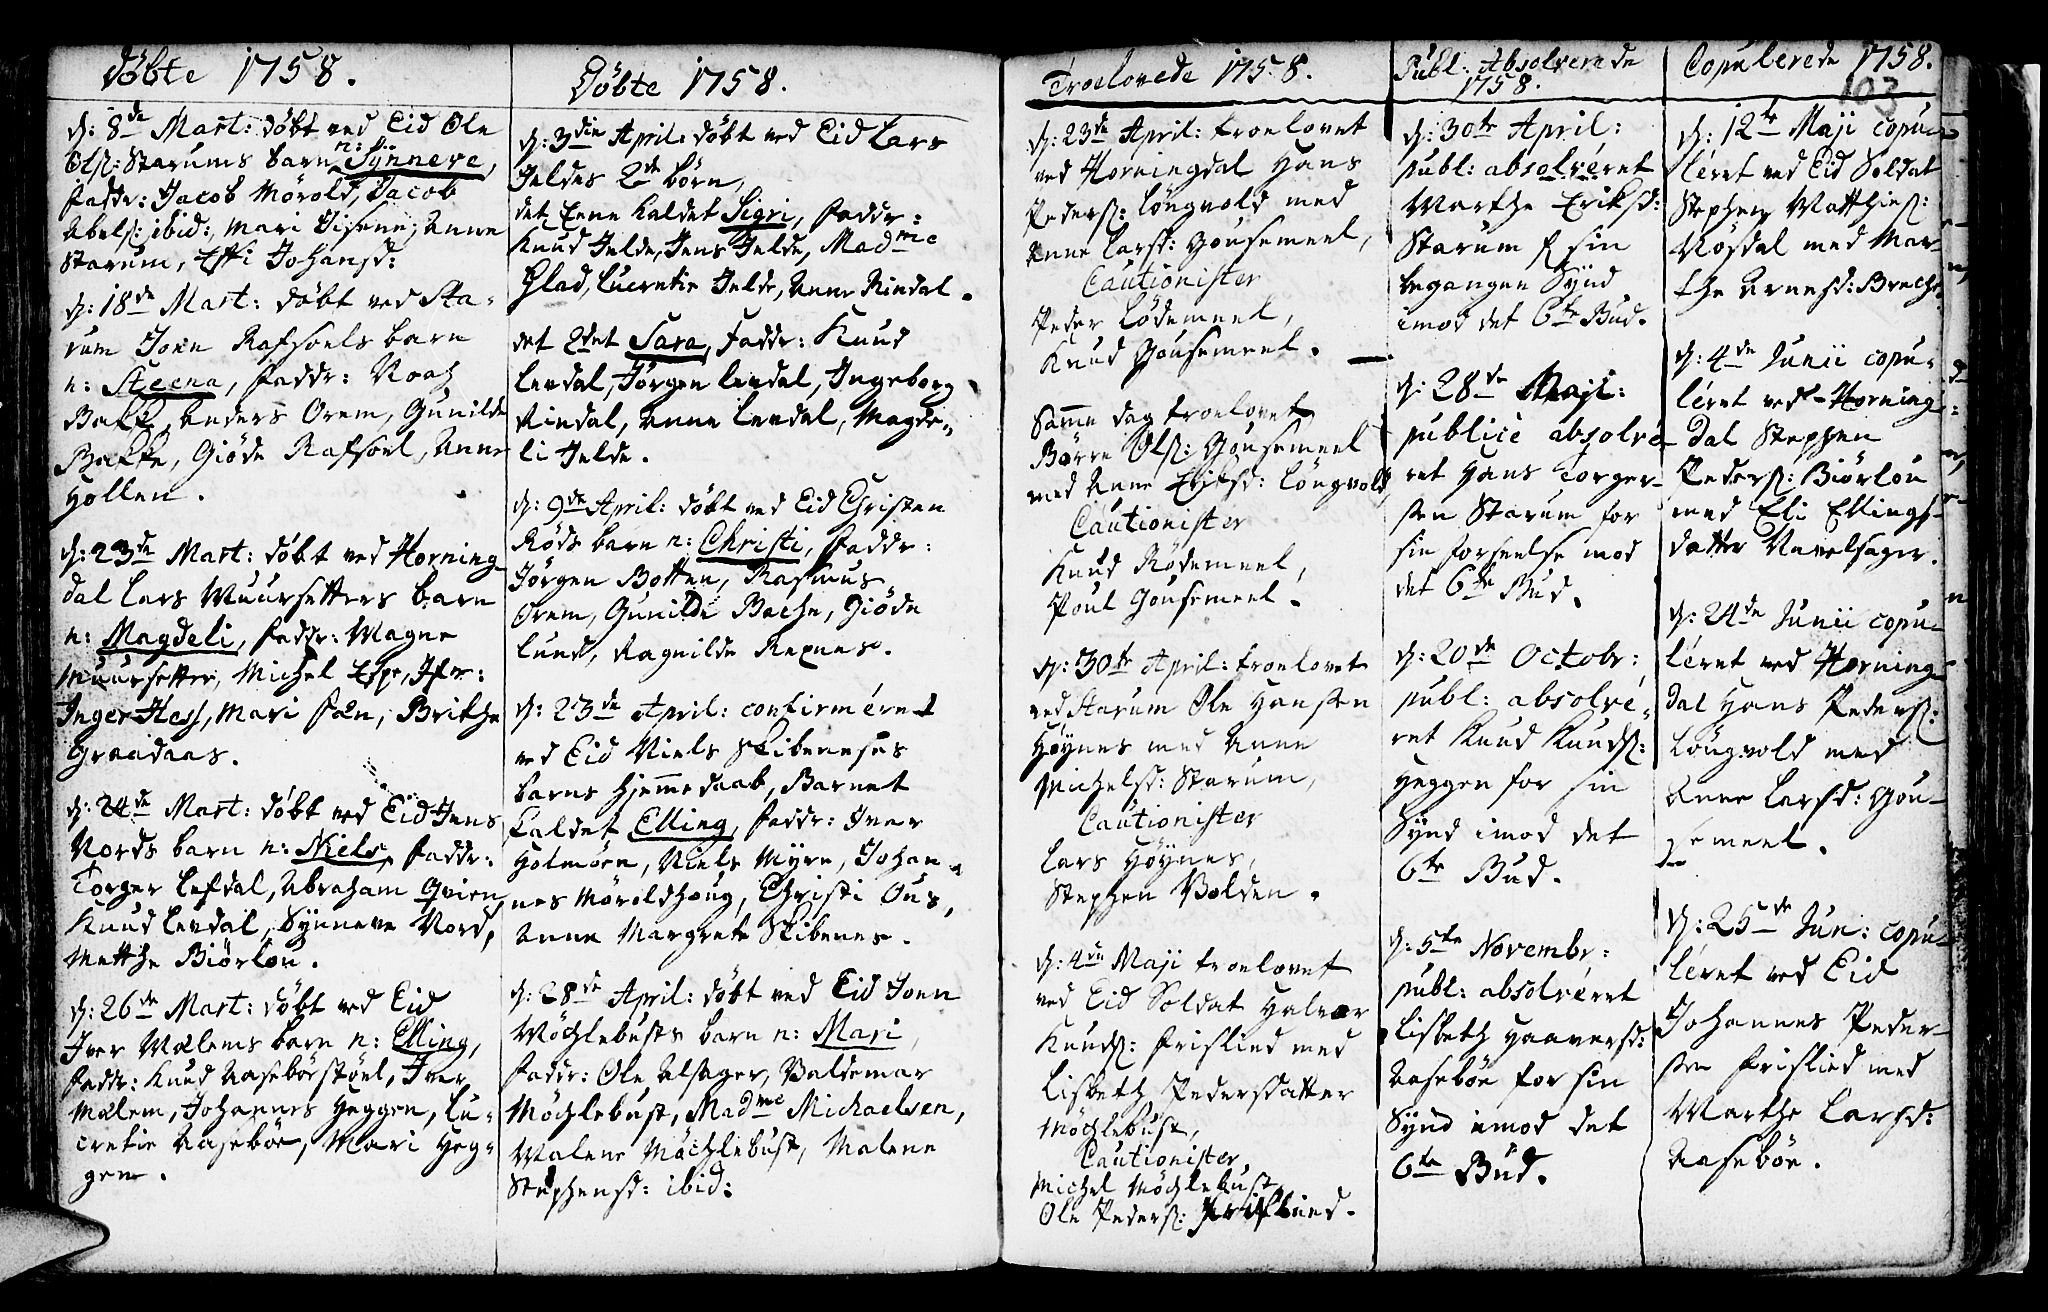 Döbte 1758.
d: 8de Mart: döbt ved Eid Ole
Ols: Starums barn n: Synneve,
Faddr: Jacob Mörold, Jacob
Abels: ibid:, Mari Anne
Starum, Effi Johansd:
d: 18de Mart: döbt ved Sta-
rum Joen Rafsoels barn
n: Steena, Faddr: Noach
Bakke, Anders Orem, Gunilde
Bakke, Giöde Rafsoel, Anne
Hollen.
d: 23de Mart: döbt ved Horning
dal Lars Muursetters barn
n: Magdeli, Faddr: Magne
Muursetter, Michel Espe, Ifver:
Inger Hess, Mari Brithe
Graadaas.
d: 24de Mart: döbt ved Eid Jens
Nords barn n: Niels, Faddr:
Torger Lefdal, Abraham Qvien,
Knud Levdal, Synneve Nord,
Matthe Biörlou.
d: 26de Mart: döbt ved Eid
Iver Mælems barn n: Elling,
Faddr: Knud Aaseböestöel, Iver
Mælem, Johannes Heggen, Lu-
cretie Aaseböe, Mari Heg-
gen.
Döbte 1758.
d: 3die April: döbt ved Eid Lars
Jeldes 2de börn,
det eene kaldet Sigri, Faddr:
Knud Jelde, Jens Jelde, Madme
Glad, Lucretie Jelde, Anne Rindal.
det 2det Sara, Faddr: Knud
Levdal, Jörgen Levdal, Ingeborg
Rindal, Anne Levdal, Magde-
li Jelde.
d: 9de April: döbt ved Eid Christen
Röds barn n: Christi, Faddr:
Jörgen Botten, Rasmus
Orem, Gunilde Bache, Giöde
Lund, Ragnilde Rexnes.
d: 23de April: confirméret
ved Eid Niels Skibeneses
barns hjemmedaab, Barnet
kaldet Elling, Faddr: Iver
Holmöen, Niels Myre, Johan-
nes Möroldhoug, Christi Ous,
Anne Margrete Skibenes.
d: 28de April: döbt ved Eid Joen
Möchlebusts barn n: Mari,
Faddr: Ole Alsager, Valdemar
Möchlebust, Madme Michaelsen,
Malene Möchlebust, Malene
Stephensd: ibid:
Troelovede 1758.
d: 23de April: troelovet
ved Horningdal Hans
Peders: Löngvold med
Anne Larsd: Gousemeel,
Cautionister
Peder Lödemeel,
Knud Gousemeel.
Samme dag troelovet
Börre Ols: Gousemeel
med Anne Eriksd: Löngvold,
Cautionister
Knud Rödemeel,
Poul Gousemeel.
d: 30te April: troelovet
ved Starum Ole Hansen
Höynes med Anne
Michelsd: Starum,
Cautionister
Lars Höynes,
Stephen Volden.
d: 4de Maji troelovet
ved Eid Soldat Halvor
Knuds: Frislied med
Lisbeth Pedersdatter
Möchlebust,
Cautionister
Michel Möchlebust
Ole Peders: Frislied.
Publ: Absolverede
1758.
d: 30te April:
publ: absolvéret
Marthe Eriksd:
Starum f sin
begangen Synd
imod det 6te Bud.
d: 28de Maji:
publicè absolvé-
ret Hans Torger-
sen Starum for
sin forseelse mod
det 6te Bud.
d: 20de Octobr:
publ: absolvé-
ret Knud Knuds:
Heggen for sin
Synd imod det
6te Bud.
d: 5te Novembr:
publ: absolvéret
Lisbeth Haaversd:
Aaseböe for sin
Synd imod det
6te Bud.
Copulerede 1758.
103
d: 12te Maji copu-
léret ved Eid Soldat
Stephen Matthies:
Rösdal med Mar-
the Arnesd: Breche.
d: 4de Junii copu-
léret ved Horning
dal Stephen
Peders: Biörlou
med Eli Ellings-
datter Navelsager.
d: 24de Junii copu-
léret ved Horning
dal Hans Peders:
Löngvold med
Anne Larsd: Gou-
semeel.
d: 25de Jun: copu-
léret ved Eid
Johannes Peder-
sen Frislied med
Marthe Larsd:
Aaseböe.